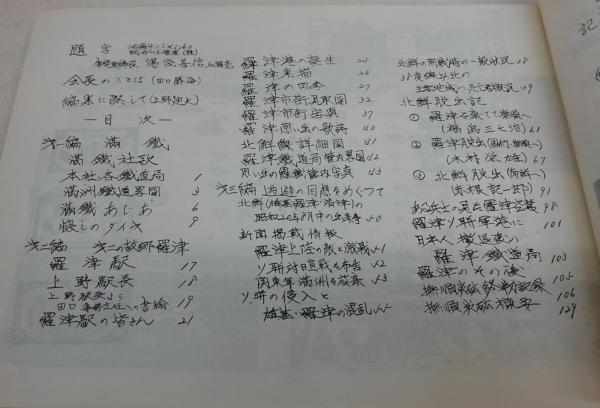 題字
会長のことば(田口勝海)
編集に際して(上野廻夫)
一目次一
第一編 満鐵
満鐵社歌
本社各鐵道局 1
満洲鐵道略図 3
満鐵あじあ 6
懐しのダイヤ 9
第二編 第二の故郷羅津
羅津駅 17
上野駅長 18
上野駅長より
田口事務主任への書翰 19
羅津駅の皆さん 21
羅津港の誕生 25
羅津素描 26
羅津の四季 27
羅津市街見取図 32
羅津市街写真 37
羅津思い出の歌詩 40
北鮮線詳細図 41
羅津鐵道局管内略図 42
思い出の羅鐵管内写真 43
第三編 逃避の回想をめぐって
北鮮(雄基・羅津・清津)の
昭和20年8月中の出来事 50
新聞掲載情報
羅津上陸の敵と激戦 51
ソ聯対日宣戦を布告 52
関東軍満洲を放棄 53
ソ聯の侵入と
雄基・羅津の混乱 55
北鮮の同戦後の一般状況 58
38度線以北の
主要地域への死亡者状況 59
北鮮脱出記
① 羅津を棄てて撫順へ
(福島三七治) 61
② 羅津脱出(南朝鮮へ)
(木村栄雄) 67
③ 北鮮脱出(南鮮へ)
91
98
羅津ソ聯軍港に 101
日本人撤退後の
羅津鐵道局 103
羅津のその後 105
撫順炭砿終戦記録 106
撫順炭砿概要 129
記